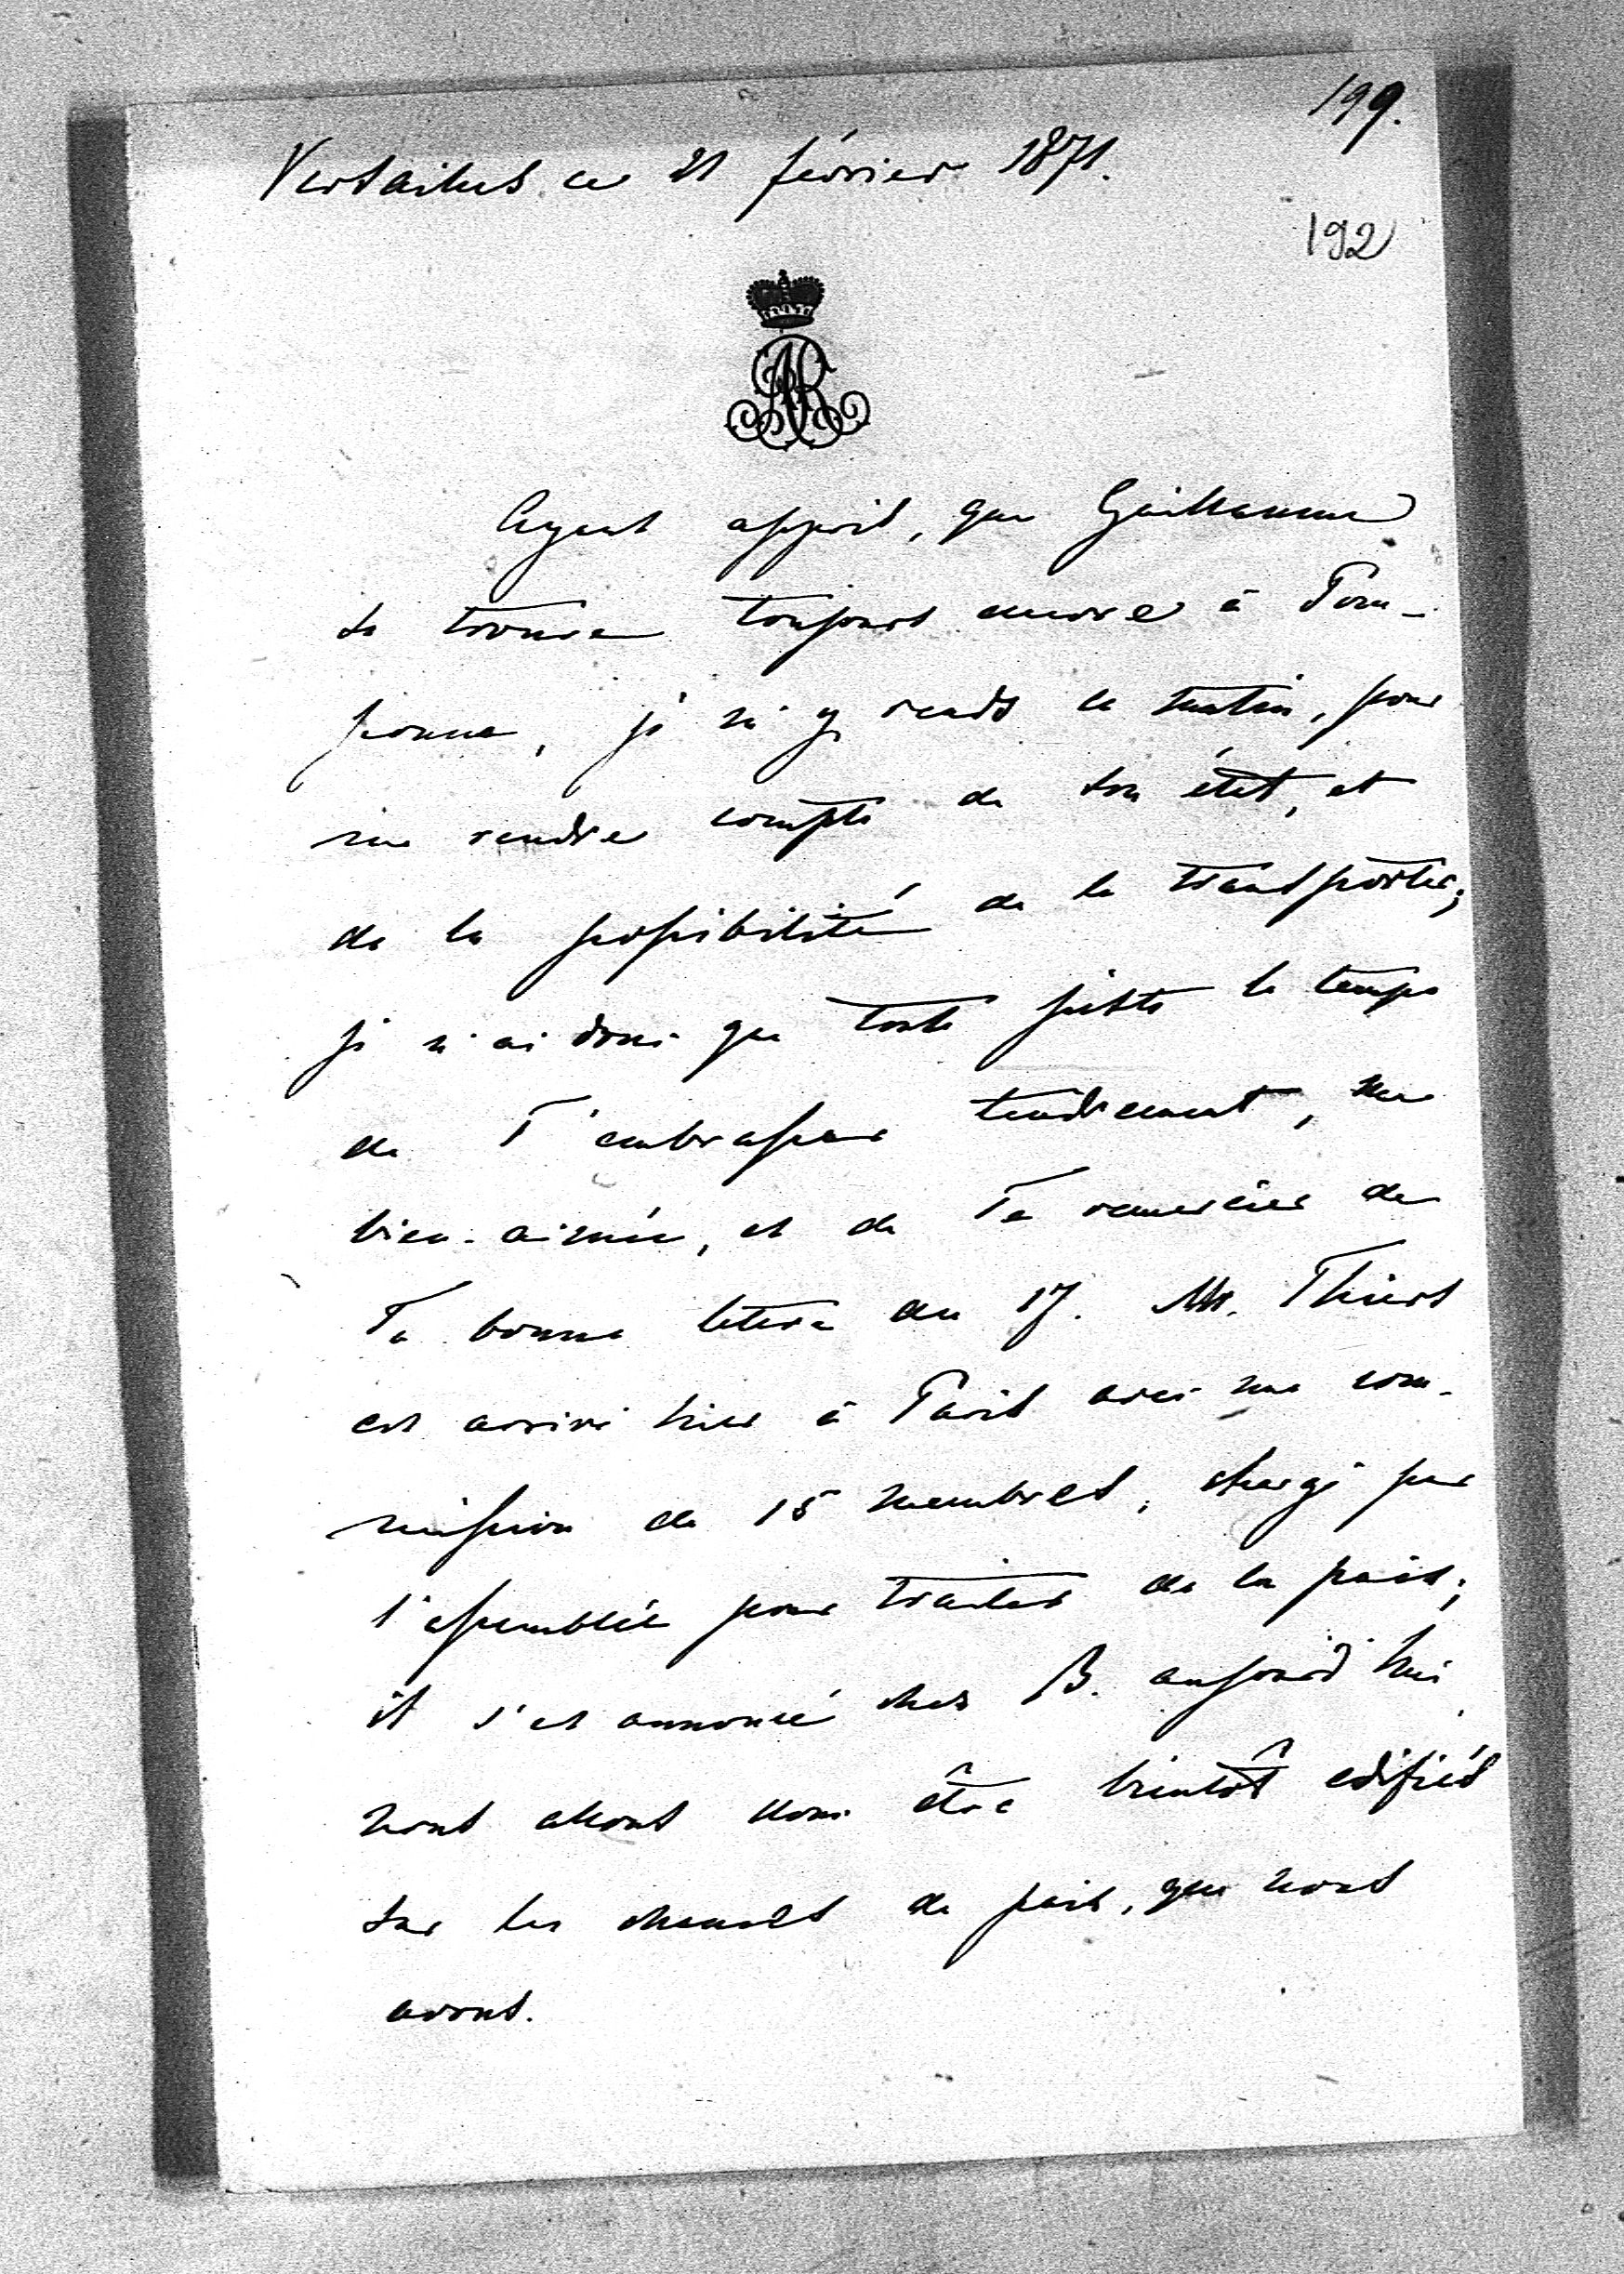 199.
Versailles ce 21 février 1871.
192
AR
Ayant appris, que Guillaume
se trouve toujours encore à Pom-
ponne, je m'y rends ce matin, pour
me rendre compte de son état, et
de la possibilité de le transporter;
je n'ai donc que tout juste le temps
de T'embrasser tendrement, ma
bien-aimée, et de Te remercier de
Ta bonne lettre du 17. Mr. Thiers
est arrivé hier à Paris avec une com-
mission de 15 membres, chargé par
l'assemblée pour traiter de la paix;
il s'est annoncé chez B. aujourd'hui,
nous allons donc être bientôt edifiés
sur les chances de paix, que nous
avons.